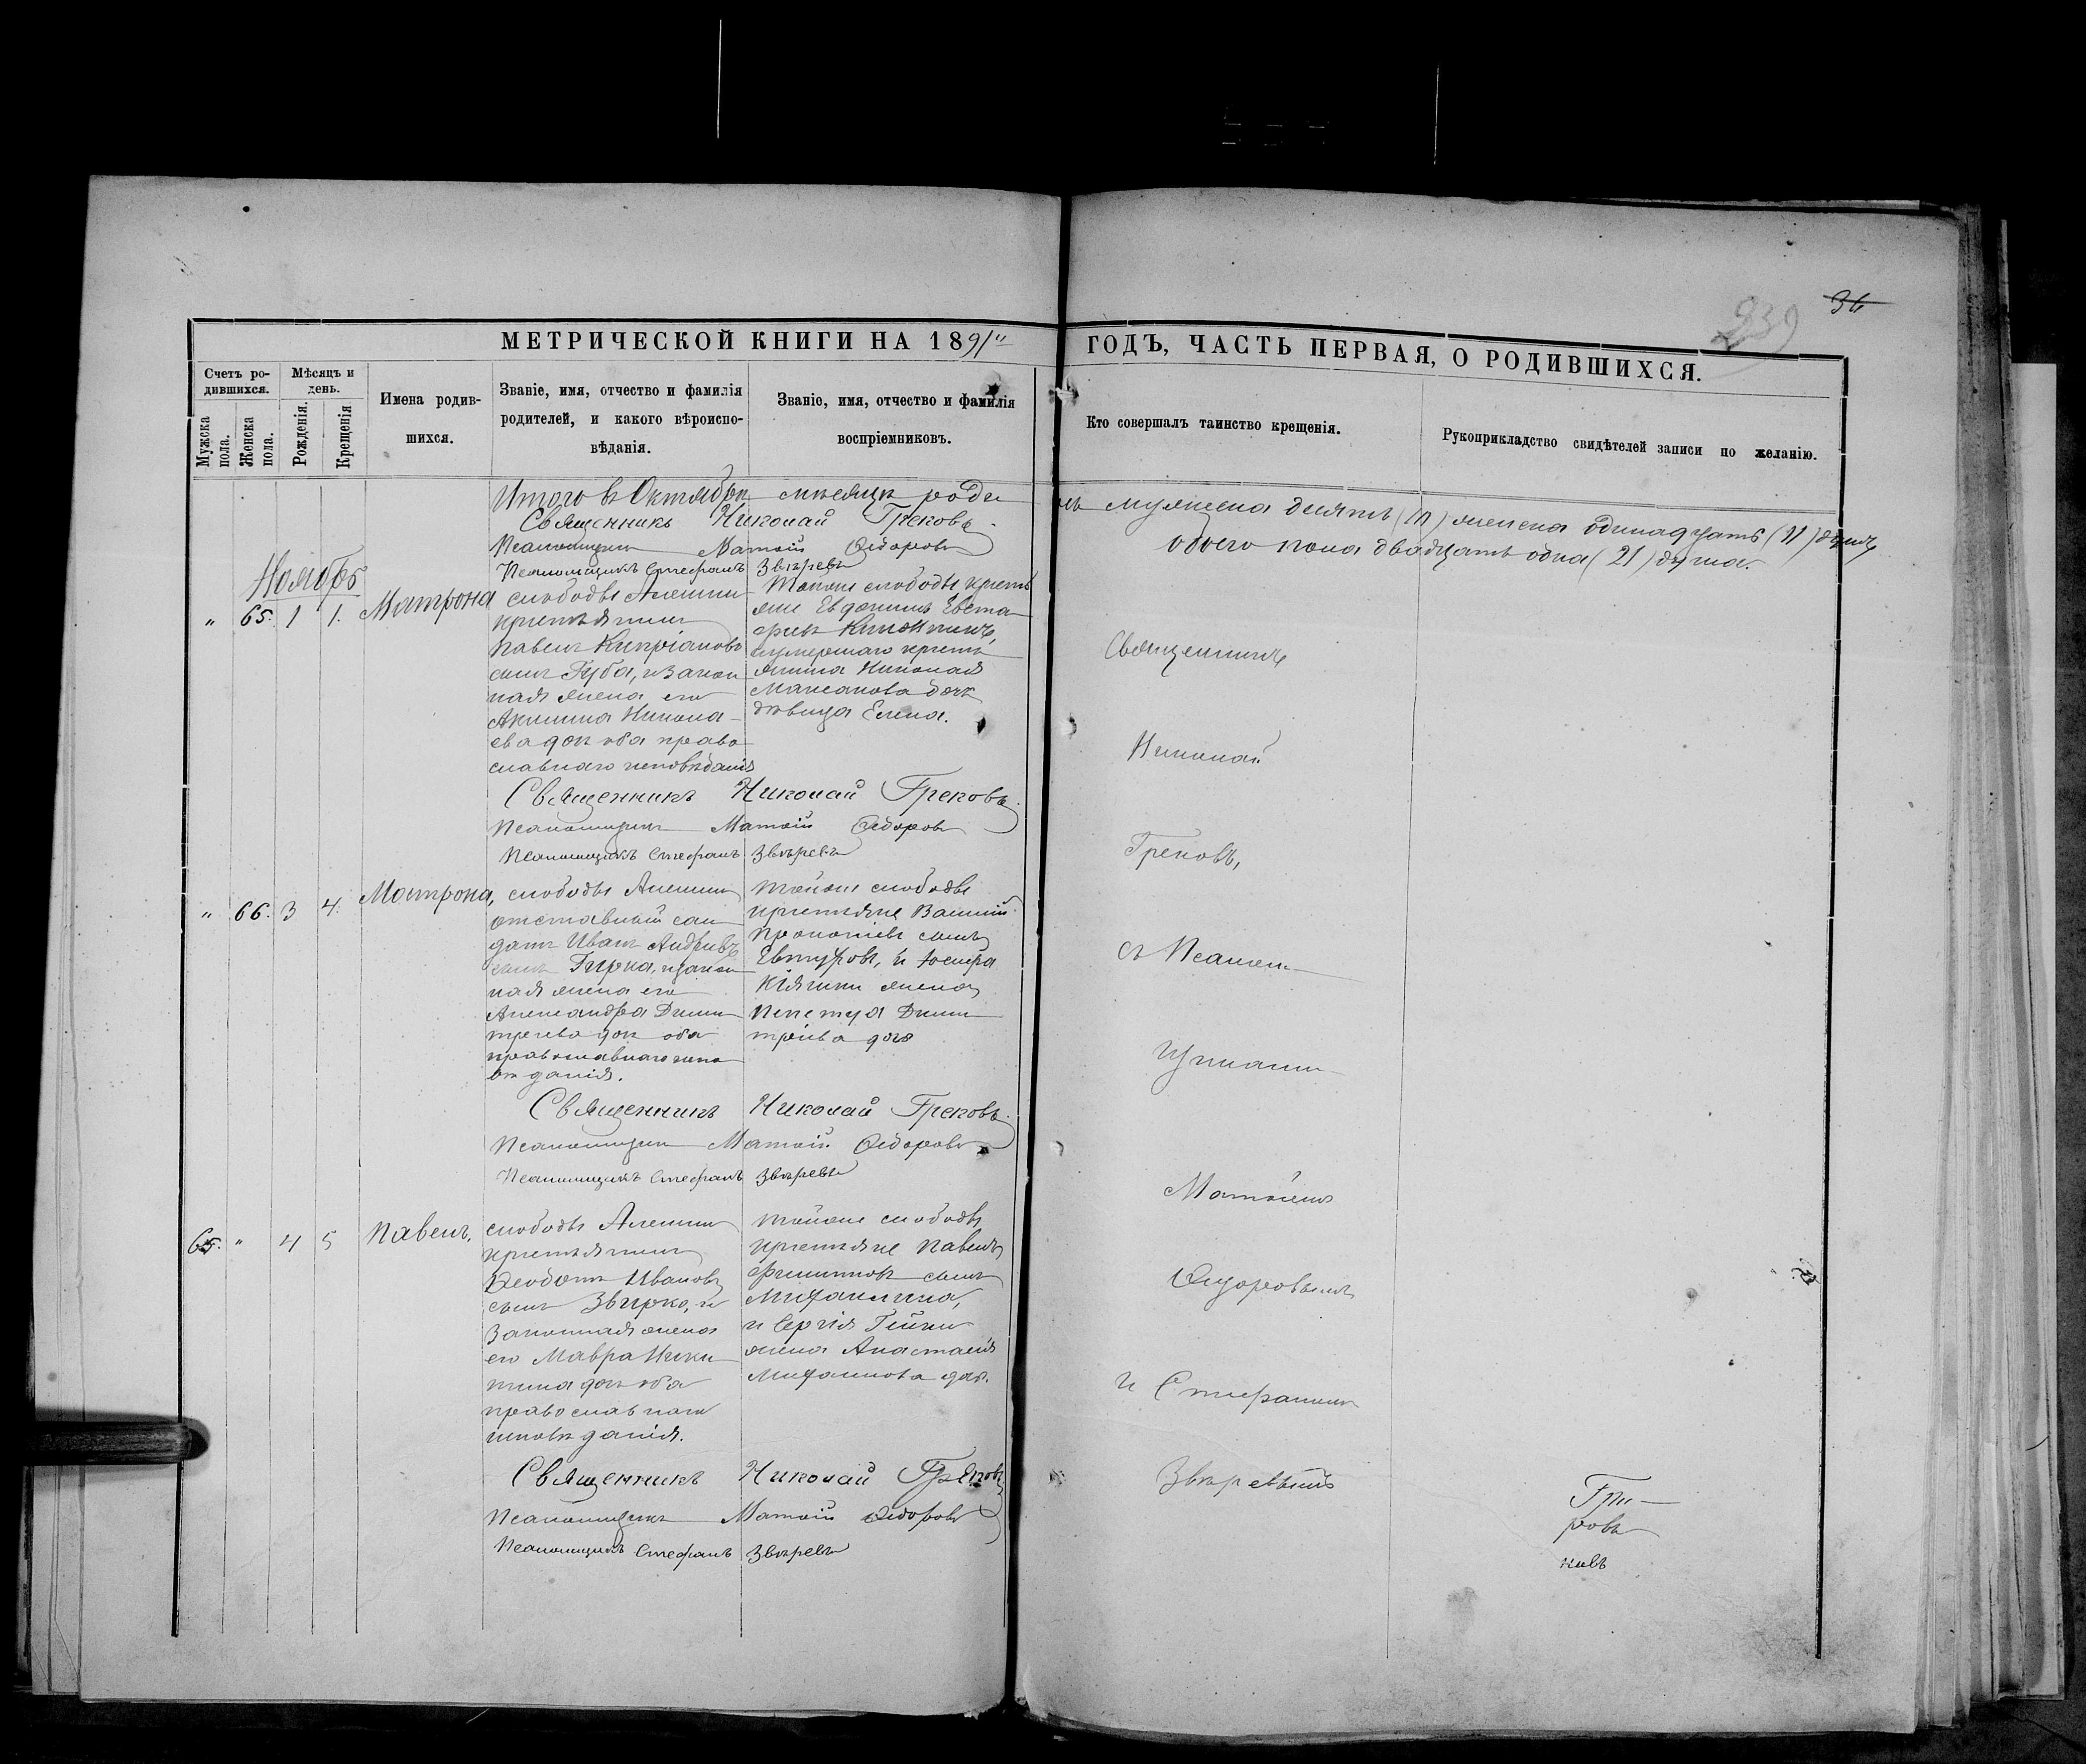 239 34
МЕТРИЧЕСКОЙ КНИГИ НА 1891й ГОДЪ, ЧАСТЬ ПЕРВАЯ, О РОДИВШИХСЯ.
Счетъ ро-
дившихся.
Мужска
пола.
Женска
пола.
Мѣсяцъ и
день.
Рожденія.
Крещенія
Имена родив-
шихся.
Званіе, имя, отчество и фамилія
родителей, и какого вѣроиспо-
вѣданія.
Званіе, имя, отчество и фамилія
воспріемниковъ.
Кто совершалъ таинство крещенія.
Рукоприкладство свидѣтелей записи по желанію.
Итого въ Октябрѣ мѣсяцѣ роди
мужеска десять (10) женска одинадцать (11) душъ
обоего пола двадцать одна (21) душа.
Священникъ Николай Грековъ
Псаломщикъ Матѳій Ѳедоровъ
Псаломщикъ Стефанъ Звѣревъ
Ноябрь
" 65. 1 1. Матрона
слободы Алешни
крестьянинъ
Павелъ Кипріановъ
сынъ Губа, и закон
ная жена его
Акилина Никола-
ева доч оба право
славнаго исповѣданія
тойже слободы кресть
яне Евдокимъ Евста
фіев
и умершаго кресть
янина Николая
дочь
дѣвица Елена.
Священникъ Николай Грековъ
Псаломщикъ Матѳій Ѳедоровъ
Псаломщикъ Стефанъ Звѣревъ
" 66. 3 4. Матрона,
слободы Алешни
отставный сол
датъ Иванъ Андреевъ
сынъ Гирка, и закон
ная жена его
Александра Дими
тріева доч оба
православнаго испо
вѣданія.
тойже слободы
крестьяне Василій
Прокопіевъ сынъ
и
жена
Дими
тріева доч
Священникъ Николай Грековъ
Псаломщикъ Матѳій Ѳедоровъ
Псаломщикъ Стефанъ Звѣревъ
65. " 4 5 Павелъ,
слободы Алешни
крестьянинъ
Ѳеодотъ Ивановъ
сынъ Звирко, и
законная жена
его Мавра Ники
тина доч оба
православнаго
исповѣданія.
тойже слободы
крестьяне Павелъ
Филиповъ сынъ
и Сергія
жена Анастасія
доч.
Священникъ Николай Грековъ
Псаломщикъ Матѳій Ѳедоровъ
Псаломщикъ Стефанъ Звѣревъ
Священникъ
Николай
Грековъ,
съ Псалом-
щиками
Матѳіемъ
Ѳедоровымъ
и Стефаномъ
Звѣревымъ
Гре-
ковъ